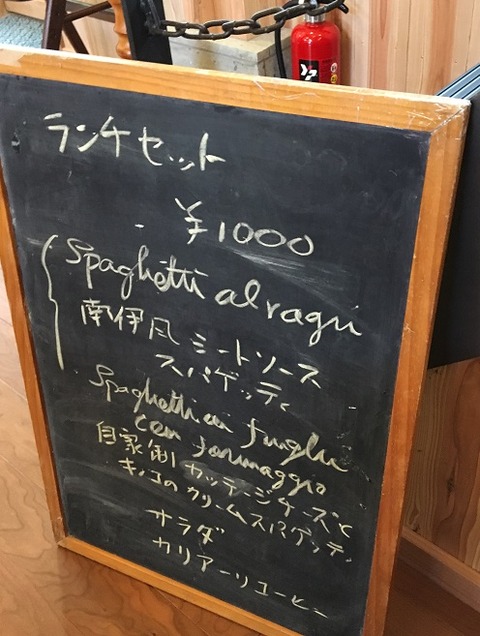 ランチセット
¥1000
Spaghetti al ragu
南伊風 ミートソース
スパゲッティ
Spaghetti ai funghi
con formaggio
自家製 カッテージチーズと
キノコのクリームスパゲッティ
サラダ
カリアーリコーヒー